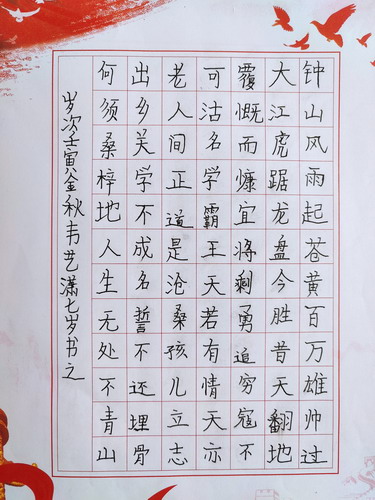 钟山风雨起苍黄百万雄帅过
大江虎踞龙盘今胜昔天翻地
覆慨而慷宜将剩勇追穷寇不
可沽名学霸王天若有情天亦
老人间正道是沧桑孩儿立志
出乡关学不成名誓不还埋骨
何须桑梓地人生无处不青山
岁次壬寅金秋韦艺潇七岁书之